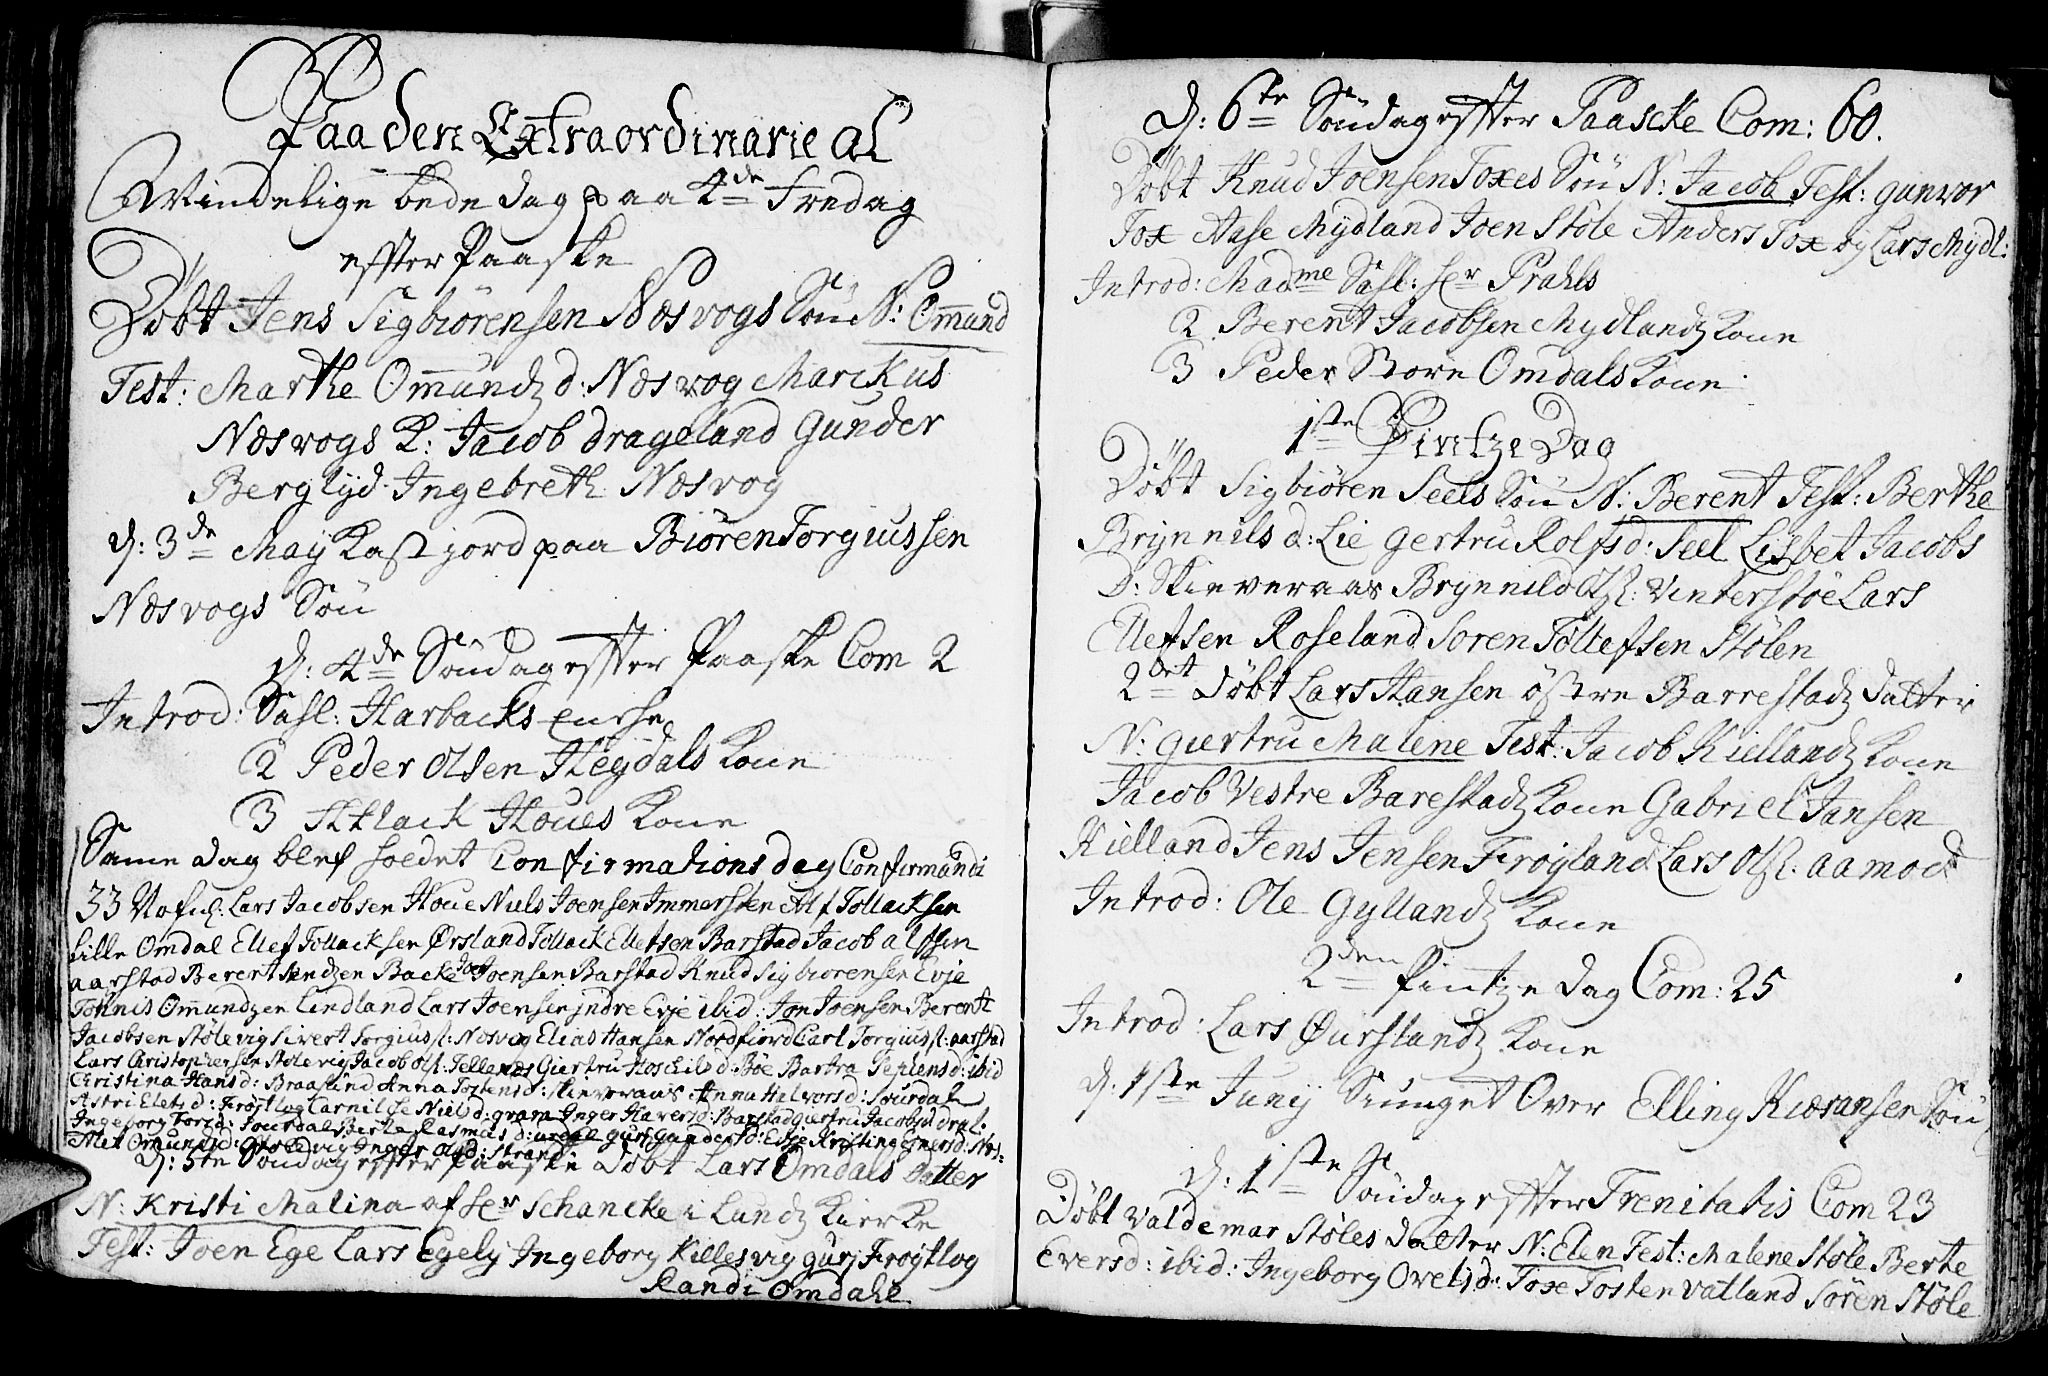 Paa den Extraordinarie al
Mindelige bede dag paa 4de Fredag
effter Paaske
Döbt Jens Sigbiörensen Næsvogs Sön N: Omund
Test: Marthe Omundz d: Næsvog Marckus
Næsvogs K: Jacob drageland Gunder
Berglyd Ingebreth Næsvog
d: 3de May Kast jord paa Biören Torgiussen
Næsvogs Sön
d: 4de Söndag effter Paaske Com 2
Introd: Sahl: Harbacks
2 Peder Olsen Heydals Kone
3 Atlack Houes Kone
Same dag blef holdet Confirmations dag Confirmandi
33 Lars Jacobsen Houe Niels Joensen Immersten Alf Tollacksen
Lille Omdal Ellef Tollacksen Ørsland Tollack Ellefsen Barstad Jacob alfsen
aarstad Berent Backe Joen Joensen Barstad Knud Sigbiörensen Evje
Tönnis Omundzen Lindland Lars Joensen jndre Evje ibid: Jon Joensen Berent
Jacobsen Stölevig Sivert Torgiuss: Næsvog Elias Hansen Nordfiord Carl Torgiuss: aarstad
Lars Christophersen Stölevig Jacob Ols: Tellenes Giertru d: Böe Barbra d: ibid
Christina Hans d: Braastad Anna Tostens d: Skieveraas Anna Halvors d: Sourdal
Astri Elefs d: Fröytlog Carnilse Niels d: gram Inger d: Barstad giertru Jacobs d
Ingeborg d: Sourdal Berte Rasmus d: Guri Gunders d: Evje Kristine d: Næs:
Omunds d: Stölevig Inger Ols d: Strand
d: 5te Söndag effter Paaske Döbt Lars Omdals Datter
N: Kristi Malina af Hr Schancke i Lundz Kierke
Test: Joen Ege Lars Egely Ingeborg Killesvig gurj Froytlog
Randi Omdahl
d: 6te Söndag effter Paaske Com: 60.
Döbt Knud Joensen Toxes Sön N: Jacob Test: gunvor
Tox Aase Mydland Joen Stöle Anders Tox og Lars Mydl:
Introd: Madme Sahl: Hr Prahls
2 Berent Jacobsen Mydlandz Kone
3 Peder Store Omdals Kone
1ste Pintze Dag
Döbt Sigbiören Seels Sön N: Berent Test: Berthe
Brynnils d: Lie gertru Rolfs d: Seel Lisbet Jacobs
d: Skieveraas Brynnild Ols: Vinterstöe Lars
Ellefsen Roseland Sören Tollefsen Stölen
2det Döbt Lars Hansen östre Barrestadz datter
N: giertru Malene Test: Jacob Kiellandz Kone
Jacob Vestre Barestadz Kone Gabriel Jansen
Kielland Jens Jensen Frøyland Lars Ols: aamodt
Introd: Ole Gyllandz Kone
2den Pintze dag Com: 25
Introd: Lars Øurslandz Kone
d: 1ste Junij Siunget Over Elling Kiøransen Sön
d: 1ste Söndag effter Trenitatis Com 23
Döbt Valdemar Stöles datter N: Elen Test: Malene Stöle Berte
Evers d: ibid: Ingeborg Ovels d: Toxe Tosten Vatland Sören Stöle